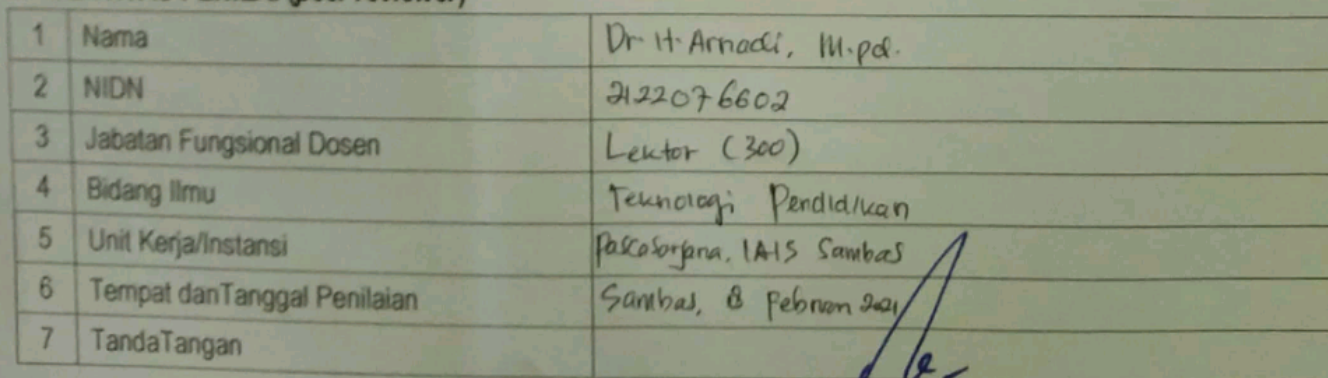 1 Nama Dr. H. Arnadi, M.pd.
2 NIDN 2122076602
3 Jabatan Fungsional Dosen Lektor (300)
4 Bidang Ilmu Teknologi Pendidikan
5 Unit Kerja/Instansi Pascasarjana, IAIS Sambas
6 Tempat danTanggal Penilaian Sambas, 8 Pebruari 2021
7 TandaTangan